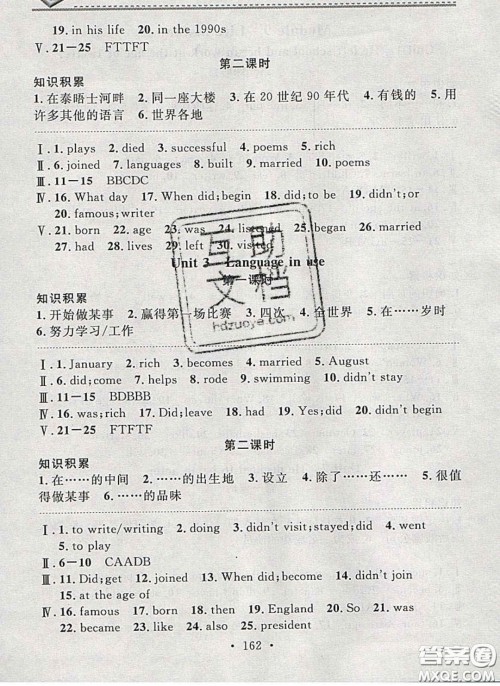 19. in his life 20. in the 1990s
Ⅴ. 21—25 FTTFT
第二课时
知识积累
1. 在泰晤士河畔 2. 同一座大楼 3. 在 20 世纪 90 年代 4. 有钱的 5. 用
许多其他的语言 6. 世界各地
Ⅰ. 1. plays 2. died 3. successful 4. poems 5. rich
Ⅱ. 6. joined 7. languages 8. built 9. married 10. poems
Ⅲ. 11—15 BBCDC
Ⅳ. 16. What day 17. When did;begin 18. to do 19. didn't;or
20. famous;writer
Ⅴ. 21. born 22. age 23. was 24. listened 25. started
26. married 27. had 28. lives 29. left 30. visited
Unit 3 Language in use
第一课时
知识积累
1. 开始做某事 2. 赢得第一场比赛 3. 四次 4. 全世界 5. 在……岁时
6. 努力学习/工作
Ⅰ. 1. January 2. rich 3. becomes 4. married 5. August
Ⅱ. 6. did;come 7. helps 8. rode 9. swimming 10. didn't stay
Ⅲ. 11—15 BDBBB
Ⅳ. 16. was;rich 17. Did;leave 18. had 19. Yes;did 20. didn't begin
Ⅴ. 21—25 FTFTF
第二课时
知识积累
1. 在……的中间 2. ……的出生地 3. 设立 4. 除了……还…… 5. 很值
得做某事 6. ……的品味
Ⅰ. 1. to write/writing 2. doing 3. didn't visit;stayed;did 4. went
5. to play
Ⅱ. 6—10 CAADB
Ⅲ. 11. Did;get 12. joined 13. When did;become 14. didn't join
15. at the age of
Ⅳ. 16. famous 17. born 18. then 19. England 20. So 21. was
22. became 23. After 24. also 25. president
· 162 ·
互助文档
hdzuoye.com
答案圈
MXQE.COM